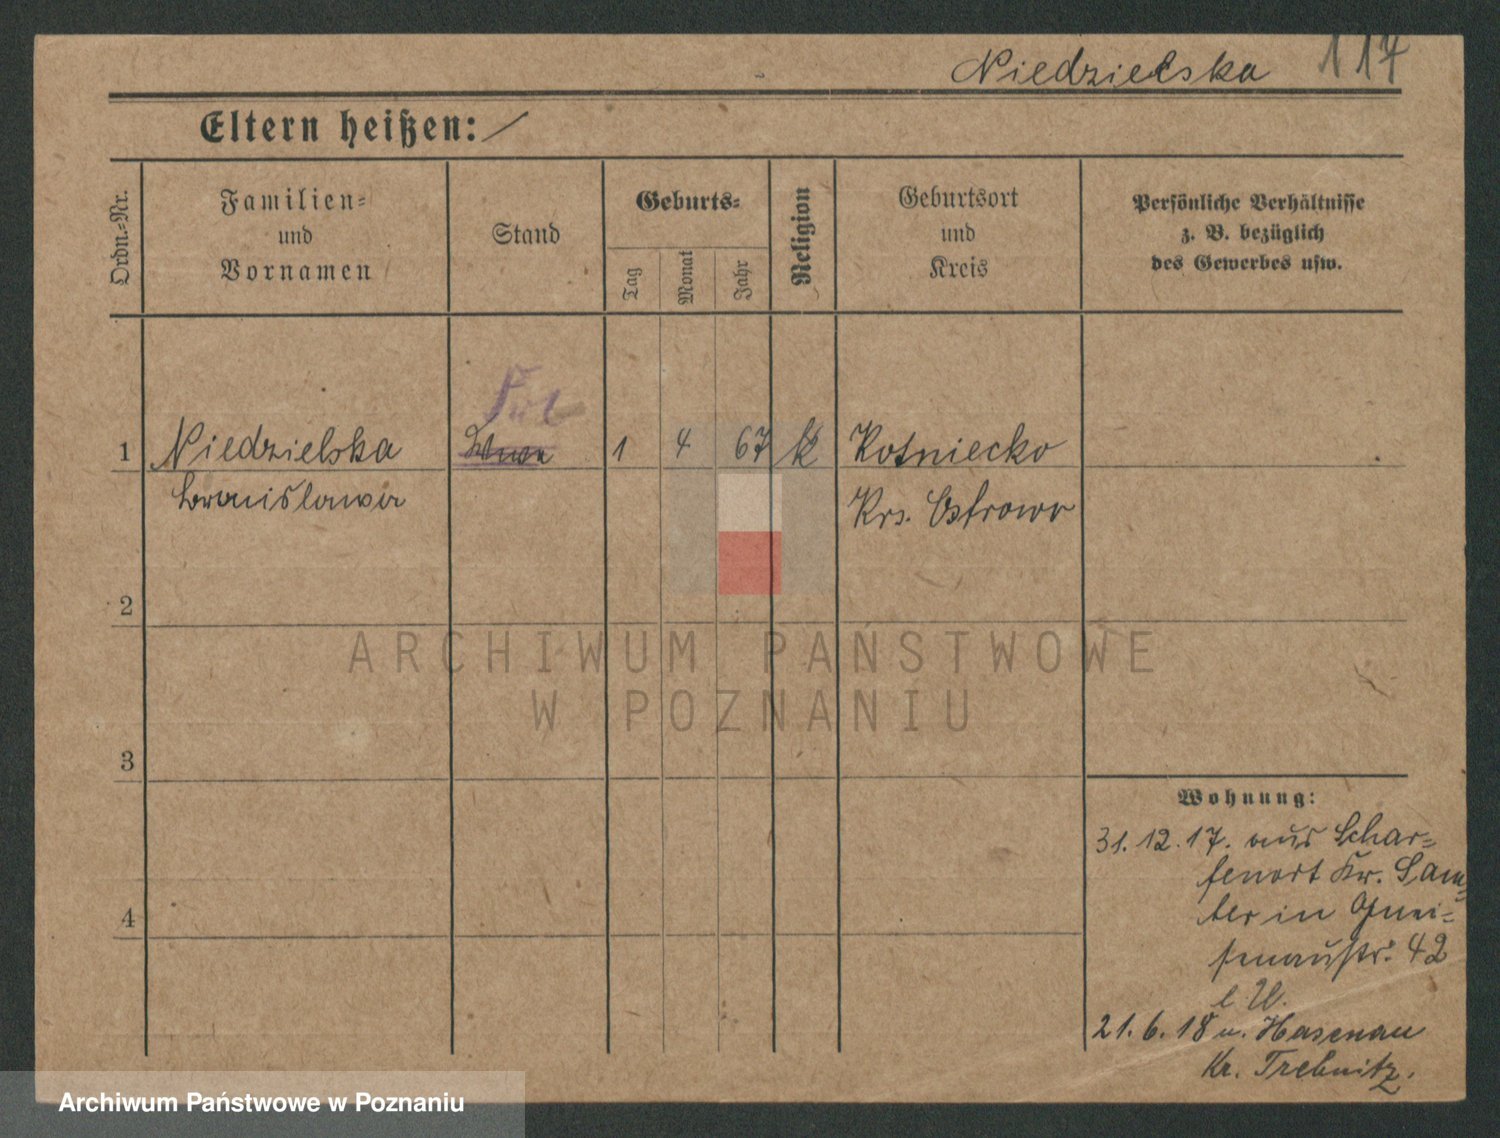 Niedzielska 117
Eltern heißen: /
Ordn.-Nr.
Familien-
und
Vornamen
Stand
Geburts-
Tag
Monat
Jahr
Religion
Geburtsort
und
Kreis
Persönliche Verhältnisse
z. B. bezüglich
des Gewerbes usw.
1 Niedzielska 1 4 67 k Rosniecko
Bronislawa Krs. Ostrowo
2
ARCHIWUM PAŃSTWOWE
W POZNANIU
3
Wohnung:
31.12.17. aus Schar-
fenort Kr. Sam-
ter in Gnei-
senaustr. 42
4
21.6.18 n. Hasenau
Kr. Trebnitz.
Archiwum Państwowe w Poznaniu